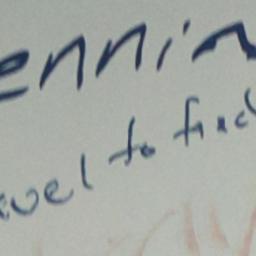 ennin
avel to find